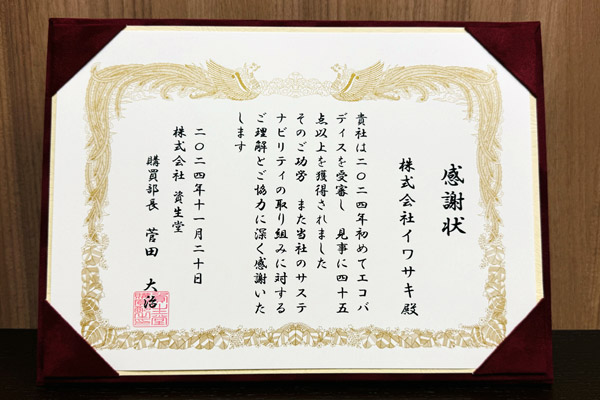 感謝状
株式会社イワサキ殿
貴社は二〇二四年初めてエコバ
ディスを受審し 見事に四十五
点以上を獲得されました
そのご功労 また当社のサステ
ナビリティの取り組みに対する
ご理解とご協力に深く感謝いた
します
二〇二四年十一月二十日
株式会社 資生堂
購買部長 菅田 大治